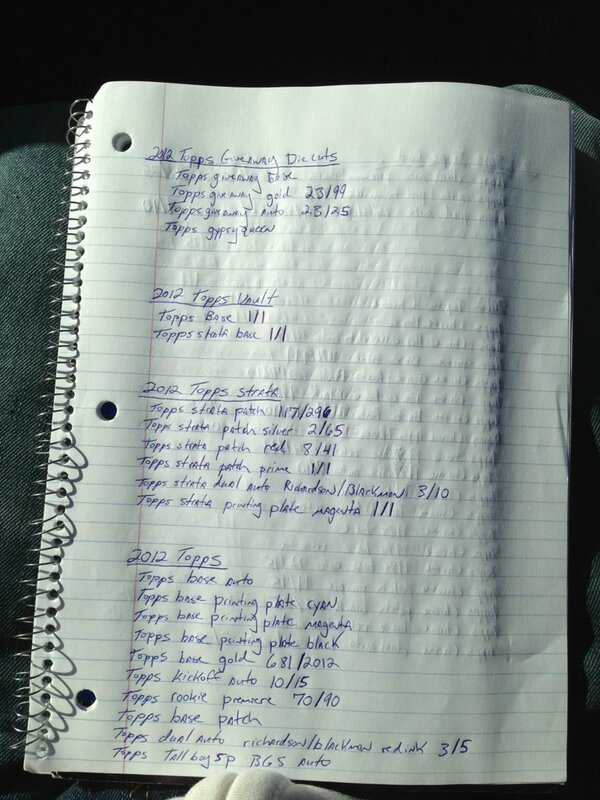 2012 Topps Giveaway Die cuts
Topps giveaway base
Topps giveaway gold 23/99
Topps giveaway auto 23/25
Topps gypsy queen
2012 Topps Vault
Topps Base 1/1
Topps strata base 1/1
2012 Topps strata
Topps strata patch 117/296
Topps strata patch silver 2/65
Topps strata patch red 8/41
Topps strata patch prime 1/1
Topps strata dual auto Richardson/Blackmon 3/10
Topps strata printing plate magenta 1/1
2012 Topps
Topps base auto
Topps base printing plate cyan
Topps base printing plate magenta
Topps base printing plate black
Topps base gold 681/2012
Topps kickoff auto 10/15
Topps rookie premiere 70/90
Topps base patch
Topps dual auto richardson/blackmon red ink 3/5
Topps Tall boy sp BGS auto